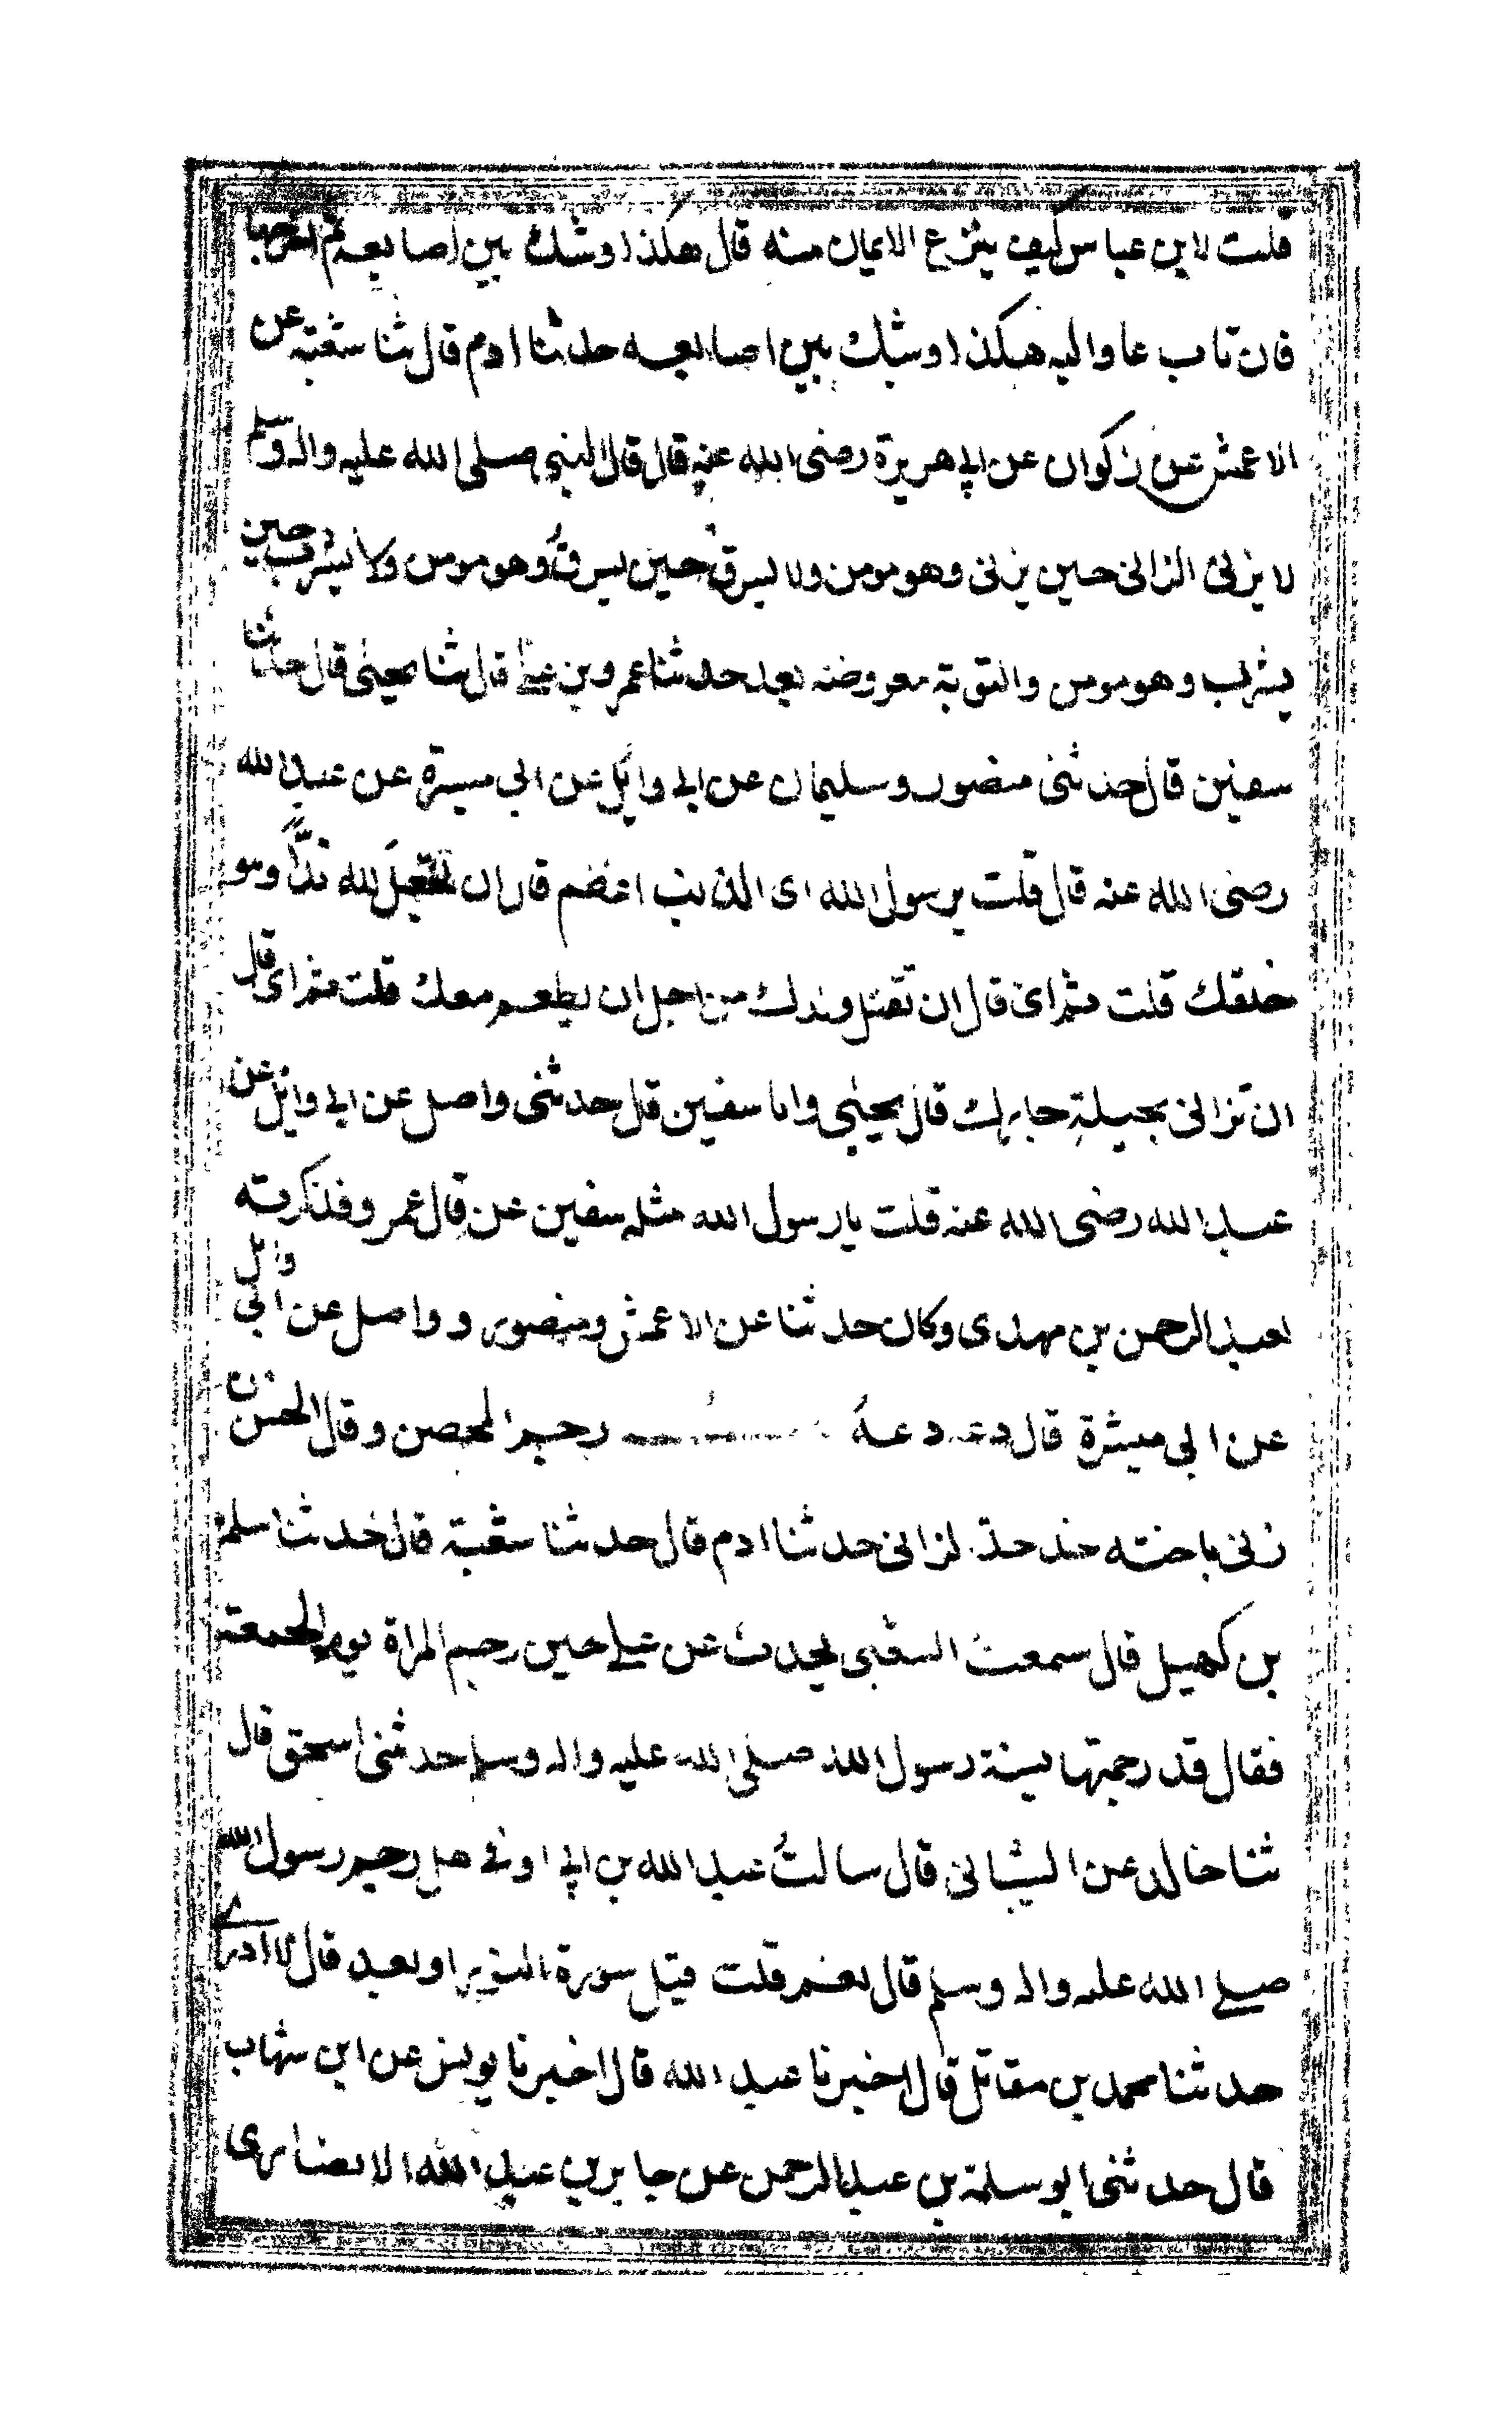 قلت لابن عباس كيف ينزع الايمان منه قال هكذا وشبك بين اصابعه ثم اخرجها
فان تاب عاد اليه هكذا وشبك بين اصابعه حدثنا ادم قال ثنا شعبة عن
الاعمش عن ذكوان عن ابي هريرة رضى الله عنه قال قال النبي صلى الله عليه واله وسلم
لا يزنى الزانى حين يزنى وهو مومن ولا يسرق حين يسرق وهو مومن ولا يشرب حين
يشرب وهو مومن والتوبة معروضة بعد حدثنا عمرو بن على قال ثنا يحيى قال حدثنا
سفين قال حدثنى منصور وسليمان عن ابى وائل عن ابى ميسرة عن عبد الله
رضى الله عنه قال قلت يرسول الله اى الذنب اعظم قال ان تجعل لله ندا وهو
خلقك قلت ثم اى قال ان تقتل ولدك من اجل ان يطعم معك قلت ثم اى قال
ان تزانى بحيلة جارك قال يحيى وانا سفين قال حدثنى واصل عن ابى وائل عن
عبد الله رضى الله عنه قلت يارسول الله مثله سفين عن قال عمرو فذكرته
لعبد الرحمن بن مهدى وكان حدثنا عن الاعمش ومنصور و واصل عن ابى وائل
عن ابى ميسرة قال دعه دعه رجم المحصن وقال الحسن من
زنى باخته حد الزانى حدثنا ادم قال حدثنا شعبة قال حدثنا سلمة
بن كهيل قال سمعت الشعبى يحدث عن على حين رجم المراة يوم الجمعة
فقال قد رجمتها بسنة رسول الله صلى الله عليه واله وسلم حدثنى اسحق قال
ثنا خالد عن الشيبانى قال سالت عبد الله بن ابى اوفى هل رجم رسول الله
صلى الله عليه واله وسلم قال نعم قلت قبل سورة النور او بعد قال لا ادرى
حدثنا محمد بن مقاتل قال اخبرنا عبد الله قال اخبرنا يونس عن ابن شهاب
قال حدثنى ابو سلمة بن عبد الرحمن عن جابر بن عبد الله الانصارى